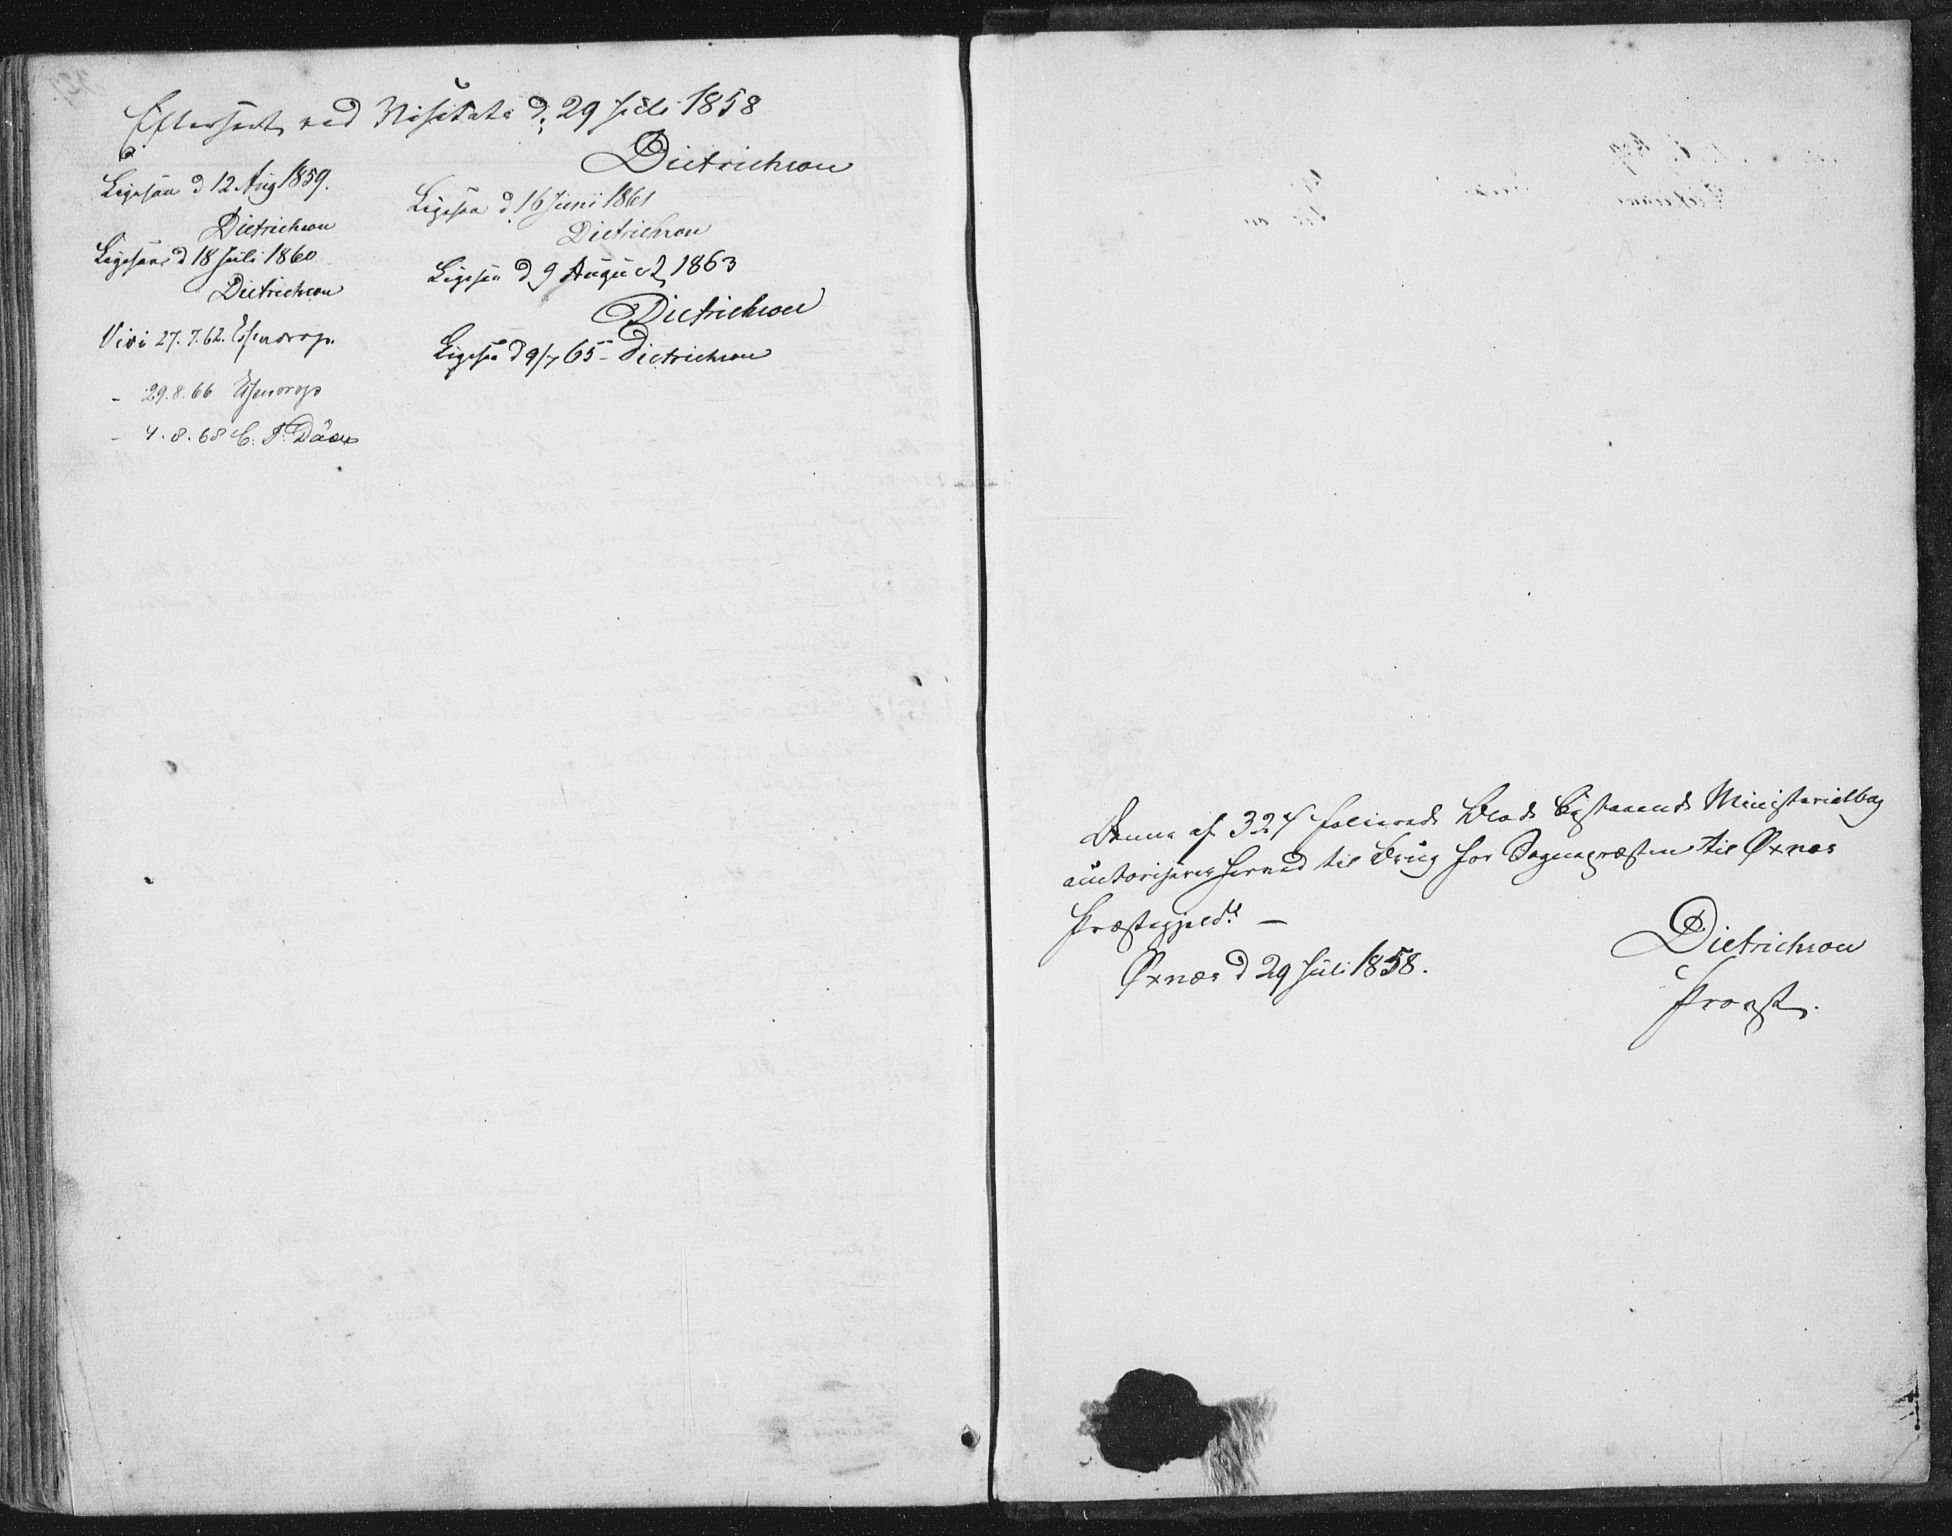 Efterseet ved Visitats d. 29 Juli 1858
Dietrichson
Ligesaa d 12 Aug 1859.
Dietrichson
Ligesaa d 18 Juli 1860
Dietrichson
Vidi 27.7.62. Essendrop.
- 29.8.66 Essendrop
- 4.8.68 C. P. Daae
Ligesaa d. 16 Juni 1861
Dietrichson
Ligesaa d 9 August 1863
Dietrichson
Ligesaa d 9/7 65 - Dietrichson
Denne af 324 folierede Blade bestaaende Ministerialbog
autoriseres herved til Brug for Sognepræsten til Øxnes
Præstegjeld. —
Øxnes d 29 Juli 1858.
Dietrichson
Provst.